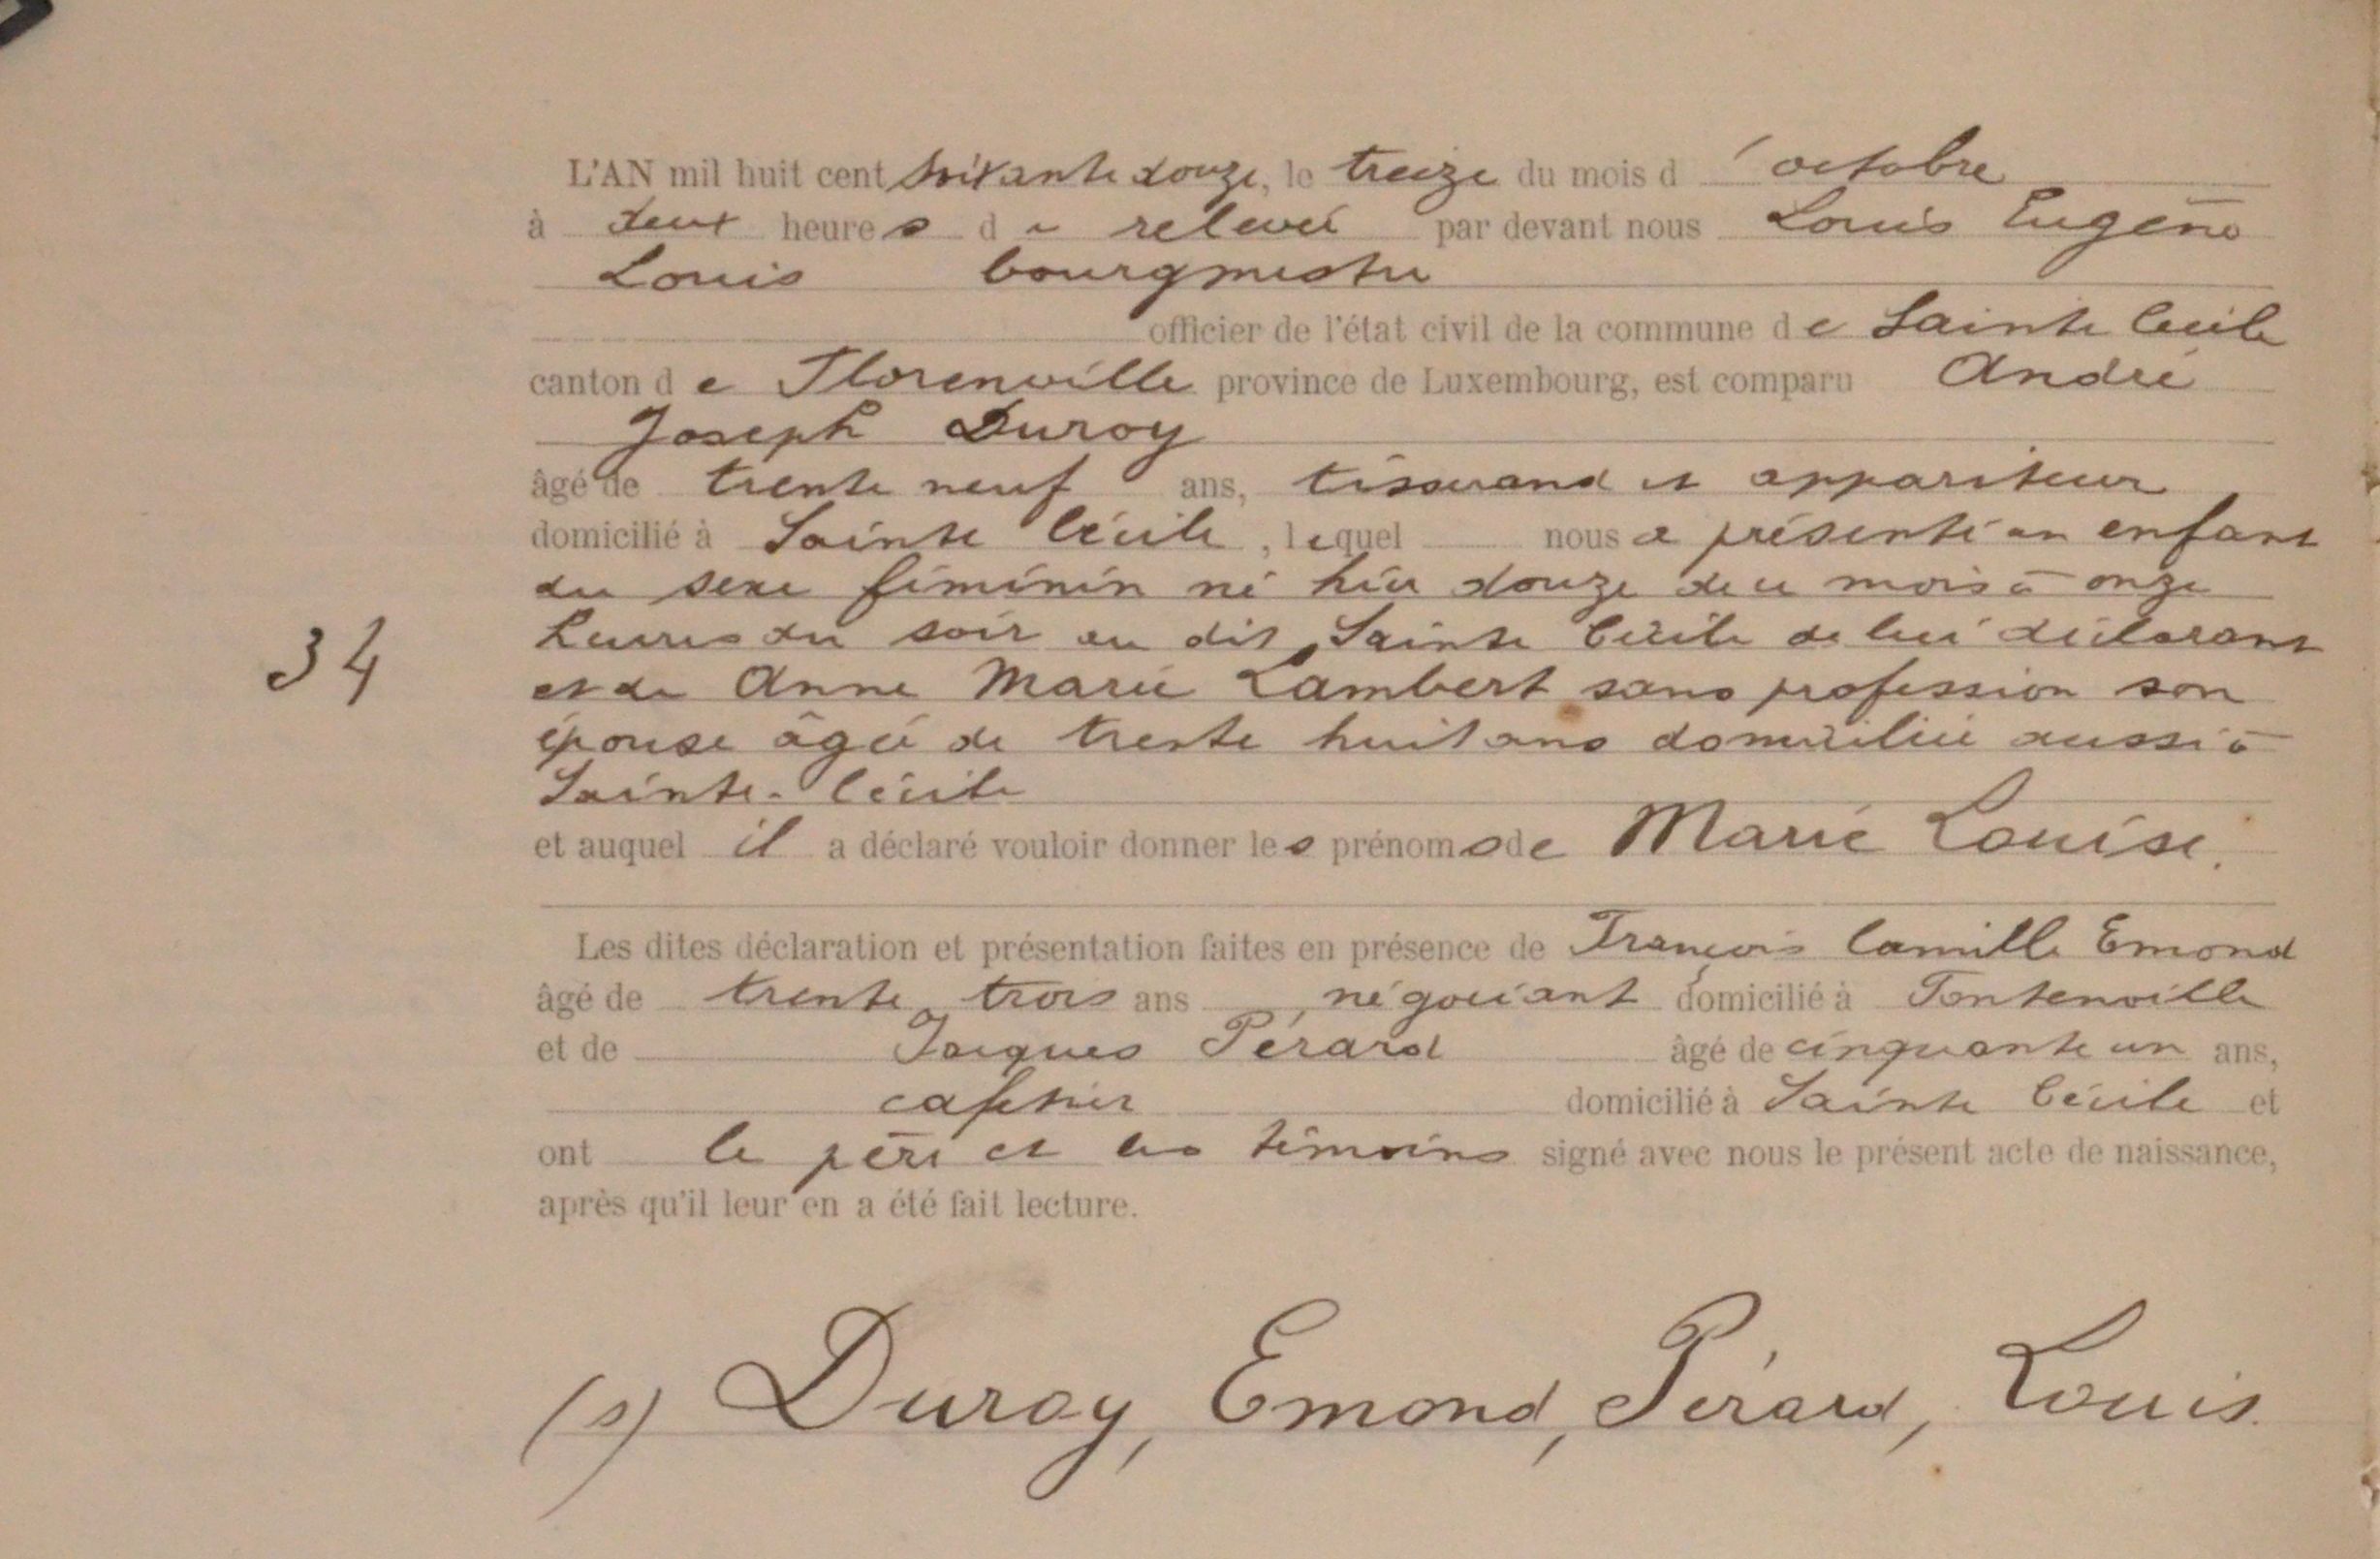 L'AN mil huit cent soixante douze, le treize du mois d'octobre
à deux heures de relevée par devant nous Louis Eugène
Louis bourgmestre
officier de l'état civil de la commune de Sainte Cécile
canton de Florenville province de Luxembourg, est comparu André
Joseph Duroy
âgé de trente neuf ans, tisserand et appariteur
domicilié à Sainte Cécile, lequel nous a présenté un enfant
du sexe féminin né hier douze de ce mois à onze
heures du soir au dit Sainte Cécile de lui déclarant
et de Anne Marie Lambert sans profession son
épouse âgée de trente huit ans domiciliée aussi à
Sainte-Cécile
34
et auquel il a déclaré vouloir donner les prénoms de Marie Louise.
Les dites déclaration et présentation faites en présence de François Camille Emond
âgé de trente trois ans, négociant domicilié à Fontenoille
et de Jacques Pérard âgé de cinquante un ans,
cafetier domicilié à Sainte Cécile et
ont le père et les témoins signé avec nous le présent acte de naissance,
après qu'il leur en a été fait lecture.
(s) Duroy, Emond, Pérard, Louis.